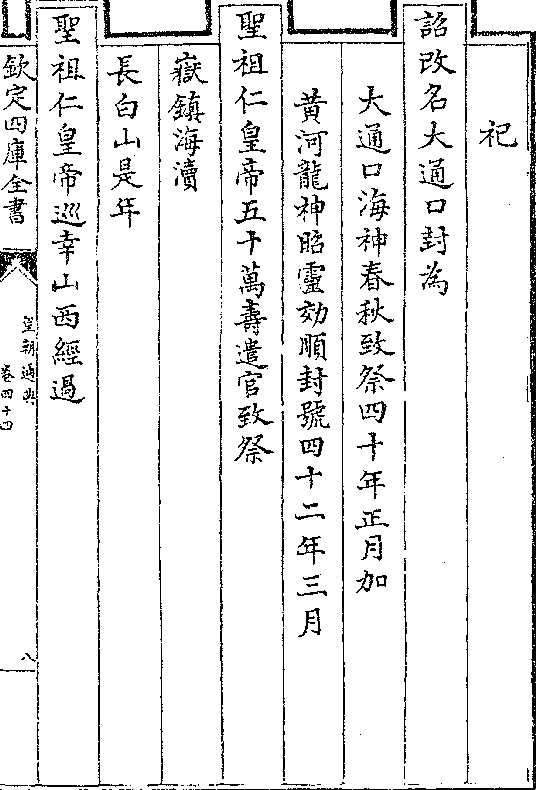 祀
詔改名大通口封為
大通口海神春秋致祭四十年正月加
黃河龍神昭靈効順封號四十二年三月
聖祖仁皇帝五十萬壽遣官致祭
嶽鎮海瀆
長白山是年
聖祖仁皇帝巡幸山西經過
欽定四庫全書
皇朝通典
卷四十四
八